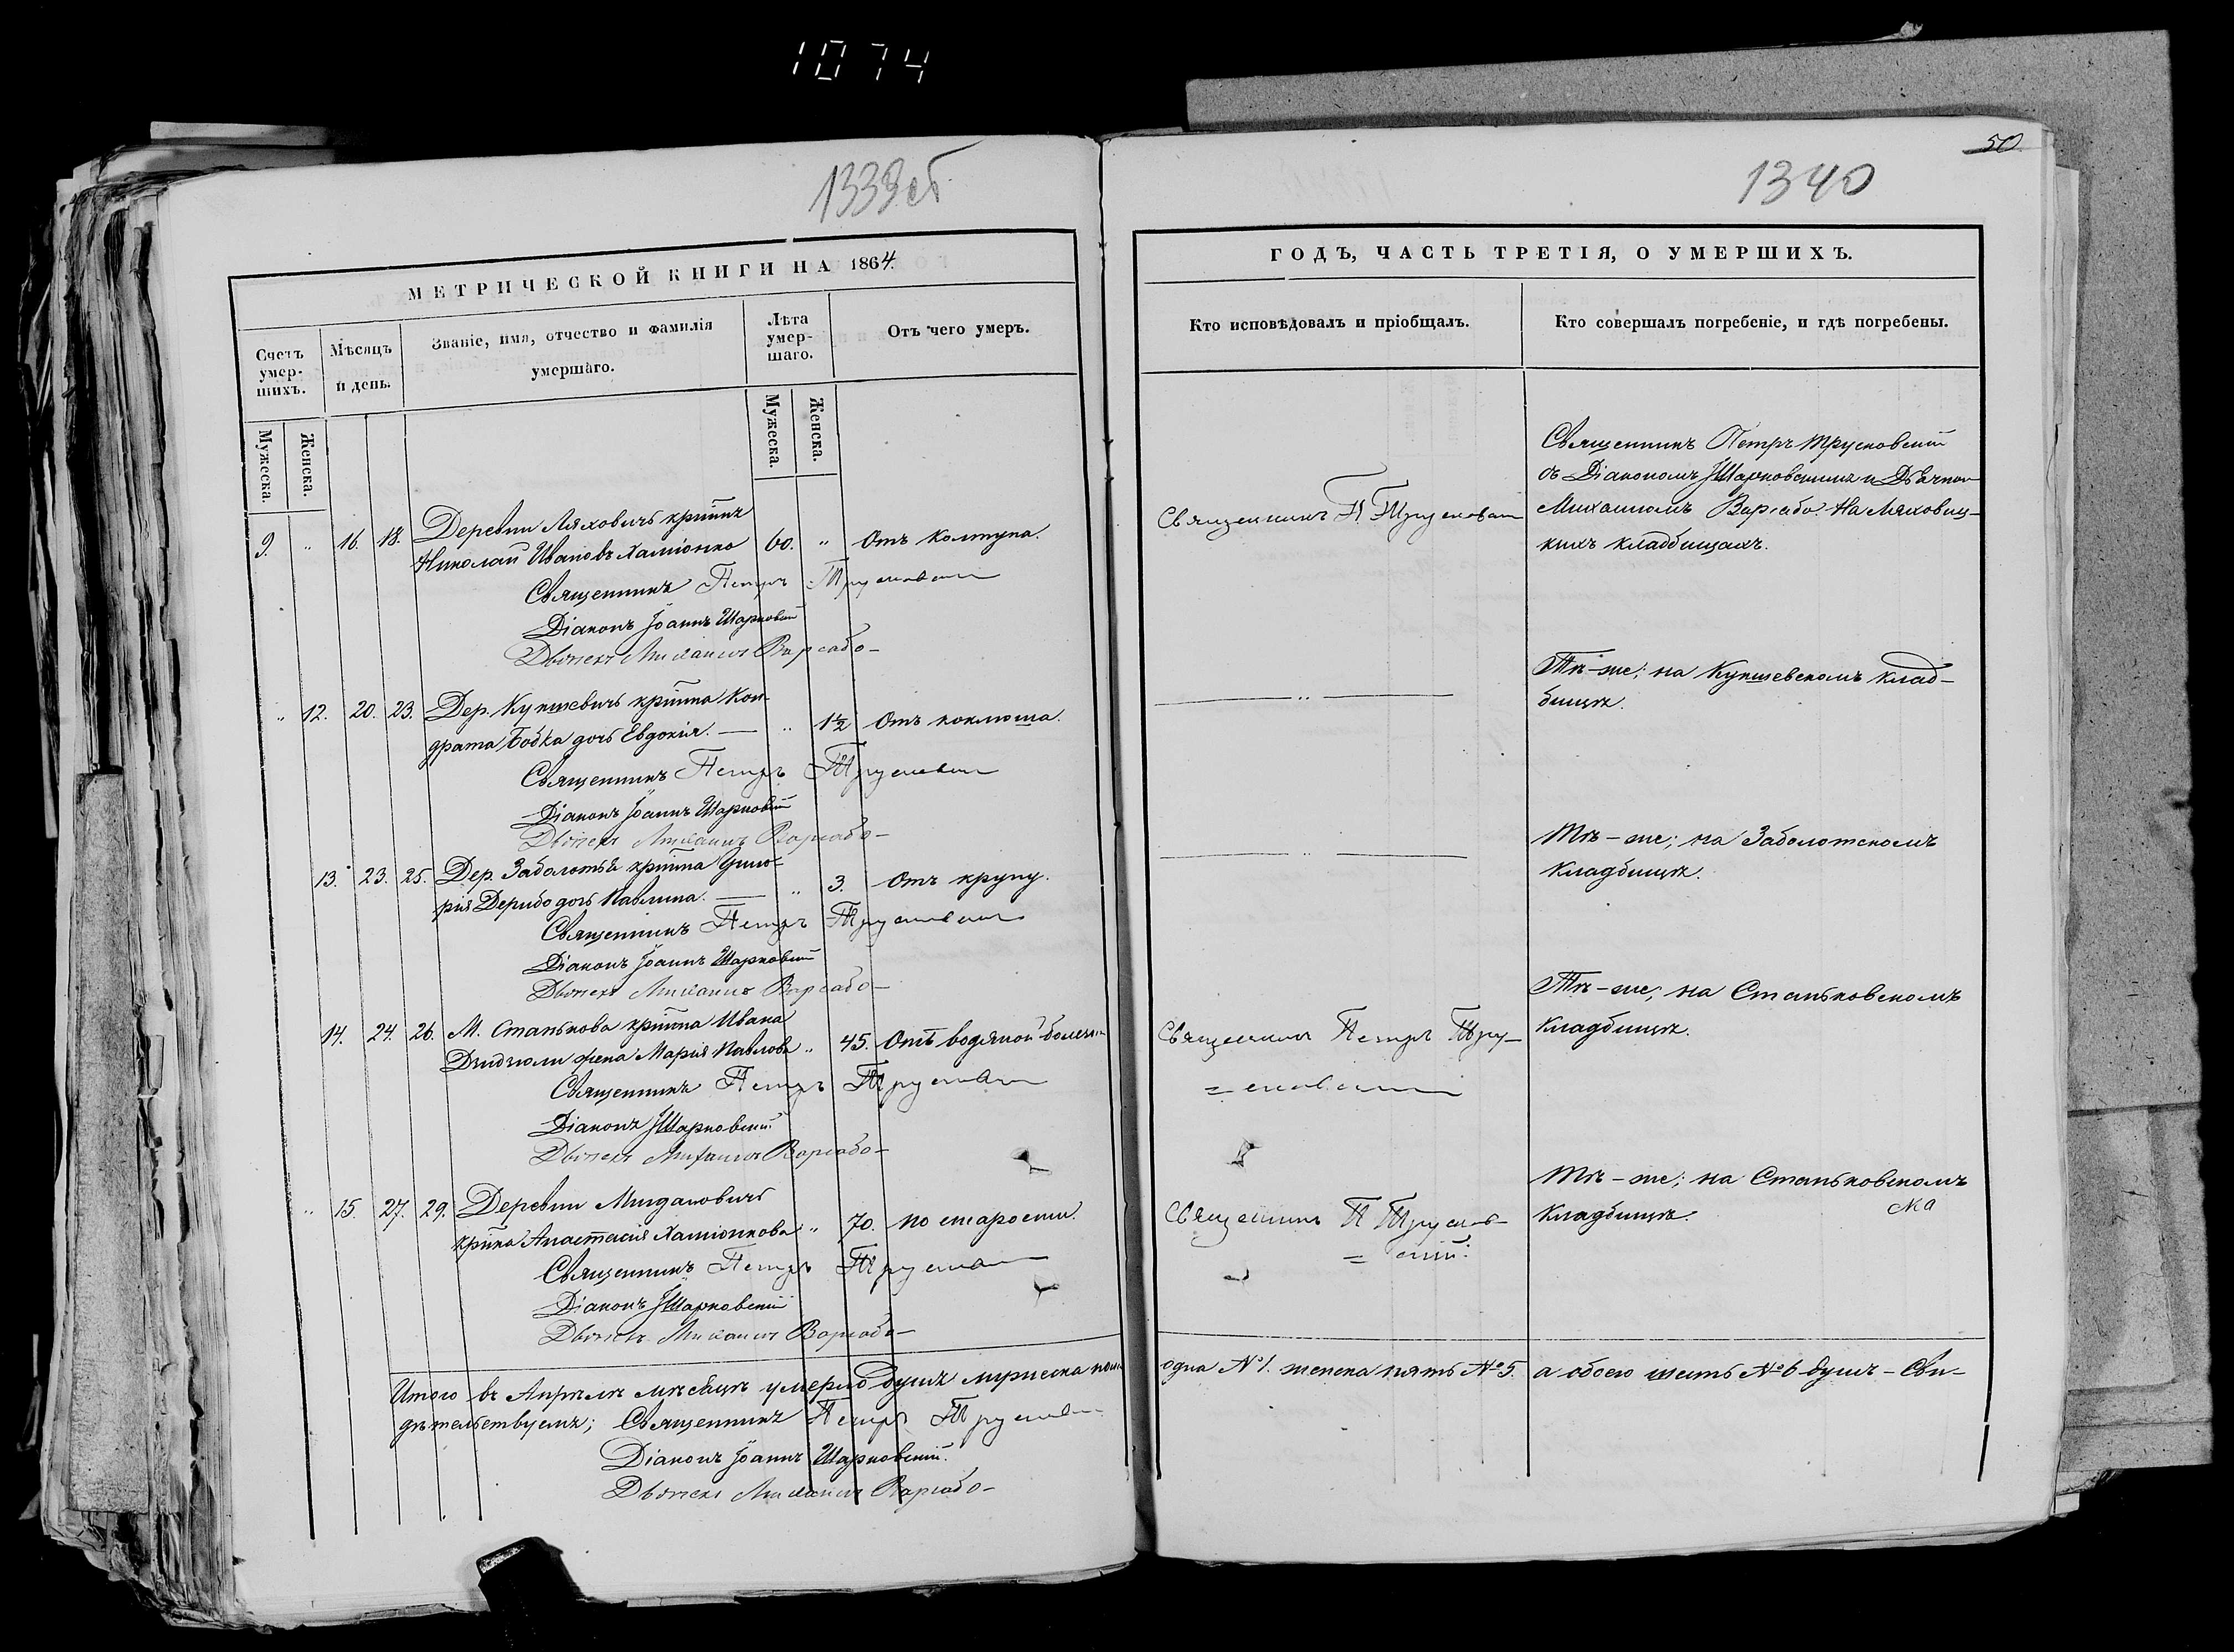 1074
1339об
МЕТРИЧЕСКОЙ КНИГИ НА 1864.
Счетъ умер-шихъ.
Мѣсяцъ и день.
Званіе, имя, отчество и фамилія умершаго.
Лѣта умер-шаго.
Отъ чего умеръ.
Мужеска. Женска. Мужеска. Женска.
9. " 16. 18. Деревни Ляховичъ кр̃тинъ
Николай Ивановъ Хаміонко 60. " Отъ колтуна.
Священникъ Петръ Трусковскій
Діаконъ Іоаннъ Шарковскій
Дьячекъ Михаилъ Варсабо-
" 12. 20. 23. Дер. Кукшевичъ кр̃тина Кон-
драта Бобка дочь Евдокія. — " 1½ Отъ коклюша.
Священникъ Петръ Трусковскій
Діаконъ Іоаннъ Шарковскій
Дьячекъ Михаилъ Варсабо-
13. 23. 25. Дер. Заболотья кр̃тина
дочь Павлина. — " 3. Отъ крупу.
Священникъ Петръ Трусковскій
Діаконъ Іоаннъ Шарковскій
Дьячекъ Михаилъ Варсабо-
14. 24. 26. М. Станькова кр̃тина Ивана
жена Марія Павлова " 45. Отъ водяной болезни
Священникъ Петръ Трусковскій
Діаконъ І Шарковскій
Дьячекъ Михаилъ Варсабо-
" 15. 27. 29. Деревни
кр̃тка Анастасія Хаміонкова " 70. по старости.
Священникъ Петръ Трусковскій
Діаконъ І Шарковскій
Дьячекъ Михаилъ Варсабо-
Итого въ Апрѣлѣ мѣсяцѣ умерло душъ мужеска пола
дѣтельствуемъ; Священникъ Петръ Трусковскій
Діаконъ Іоаннъ Шарковскій.
Дьячекъ Михаилъ Варсабо-
50
1340
ГОДЪ, ЧАСТЬ ТРЕТІЯ, О УМЕРШИХЪ.
Кто исповѣдовалъ и пріобщалъ.
Кто совершалъ погребеніе, и гдѣ погребены.
Священникъ П. Трусковскій
Священникъ Петръ Трусковскій
съ Діакономъ І Шарковскимъ и Дьячкомъ
Михаиломъ Варсабо. На Ляхович-
кихъ кладбищахъ.
— " —
Тѣ-же; на Кукшевскомъ клад-
бищѣ.
— " —
Тѣ-же; на Заболотскомъ
кладбищѣ.
Священникъ Петръ Тру-
=сковскій
Тѣ-же; на Станьковскомъ
кладбищѣ.
Священникъ П Трусков-
=скій.
Тѣ-же; на Станьковскомъ
кладбищѣ.
одна №1. женска пять №5. а обоего шесть №6 душъ-Сви-